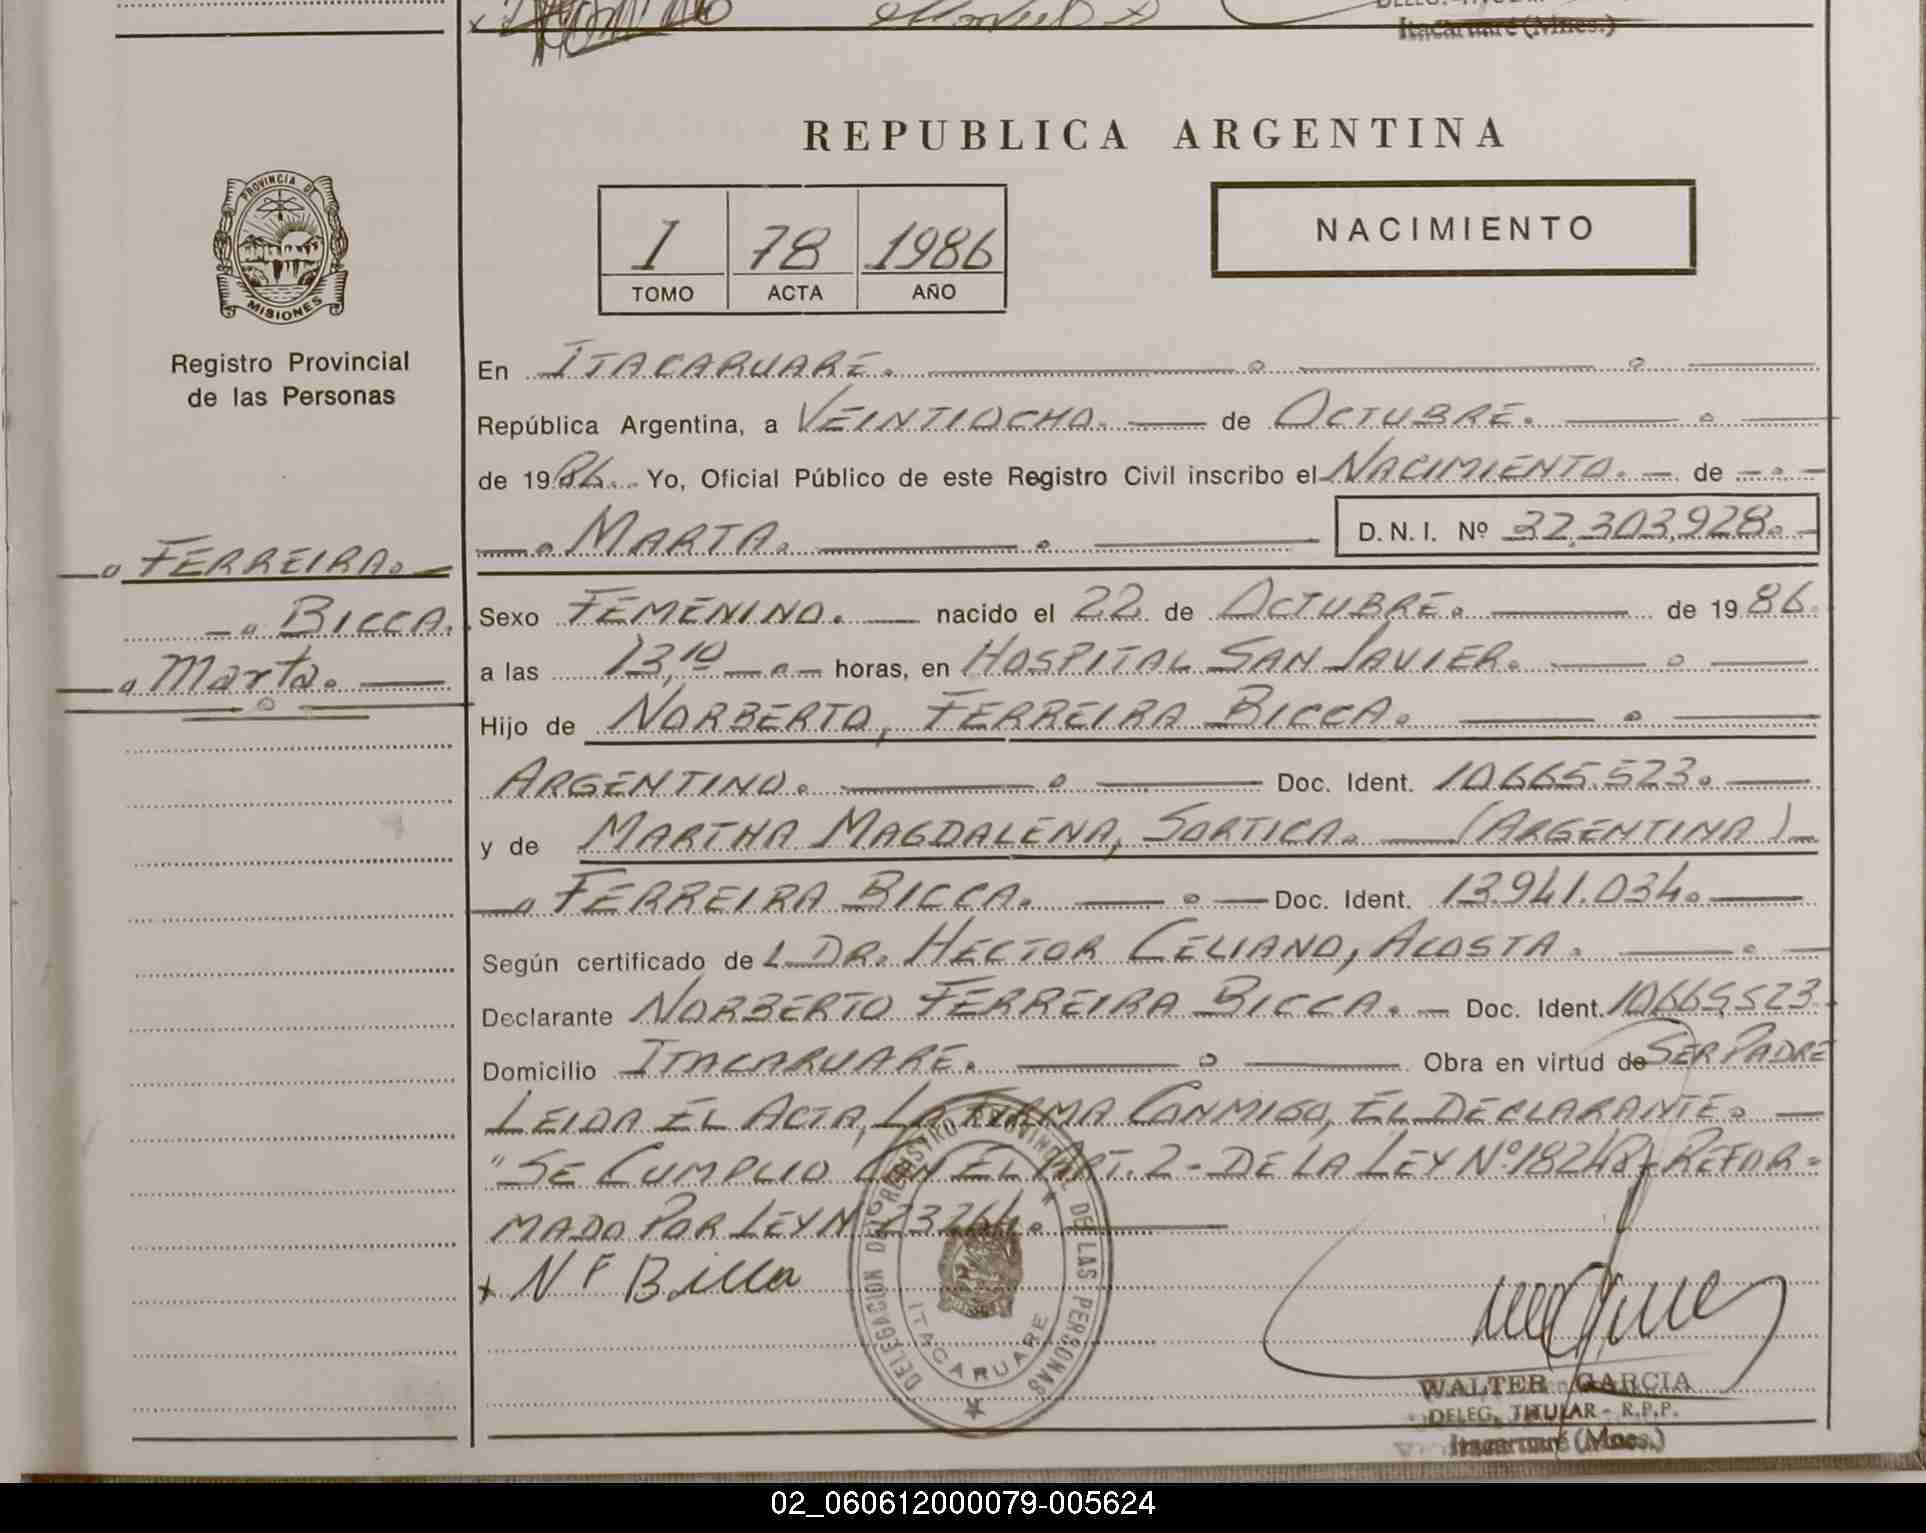 DELEG. TITULAR
Itacaruaré (Mnes.)
REPUBLICA ARGENTINA
PROVINCIA DE
MISIONES
Registro Provincial
de las Personas
I 78 1986
TOMO ACTA AÑO
NACIMIENTO
En ITACARUARE.
República Argentina, a VEINTIOCHO. de OCTUBRE.
de 1986. Yo, Oficial Público de este Registro Civil inscribo el NACIMIENTO. de
MARTA. D. N. I. Nº 32.303.928.
FERREIRA.
BICCA.
Marta.
Sexo FEMENINO. nacido el 22 de OCTUBRE. de 1986.
a las 13,10 horas, en HOSPITAL SAN JAVIER.
Hijo de NORBERTO, FERREIRA BICCA.
ARGENTINO. Doc. Ident. 10.665.523.
y de MARTHA MAGDALENA, SORTICA. (ARGENTINA)
FERREIRA BICCA. Doc. Ident. 13.941.034.
Según certificado de L DR. HECTOR CELIANO, ACOSTA.
Declarante NORBERTO FERREIRA BICCA. Doc. Ident. 10.665,523
Domicilio ITACARUARE. Obra en virtud de SER PADRE
LEIDA EL ACTA, LA FIRMA CONMIGO, EL DECLARANTE.
"SE CUMPLIO CON EL ART. 2- DE LA LEY Nº 18248- REFOR-
MADO POR LEY Nº 23264.
x N F Bicca
DELEGACION DEL REGISTRO PROVINCIAL DE LAS PERSONAS
ITACARUARE
WALTER GARCIA
DELEG. TITULAR - R.P.P.
Itacaruaré (Mnes.)
02_060612000079-005624